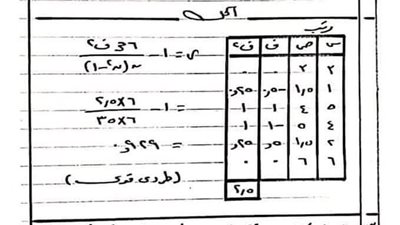 الحل
رتب
س ص ف ف²
٣ ٣ ٠ ٠
١ ١,٥ -٠,٥ ٠,٢٥
٥ ٤ ١ ١
٤ ٥ -١ ١
٢ ١,٥ ٠,٥ ٠,٢٥
٦ ٦ ٠ ٠
٢,٥
ر = ١ - ٦ مجـ ف² / ن(ن² - ١)
= ١ - ٦×٢,٥ / ٦×٣٥
= ٠,٩٢٩
(طردي قوي)